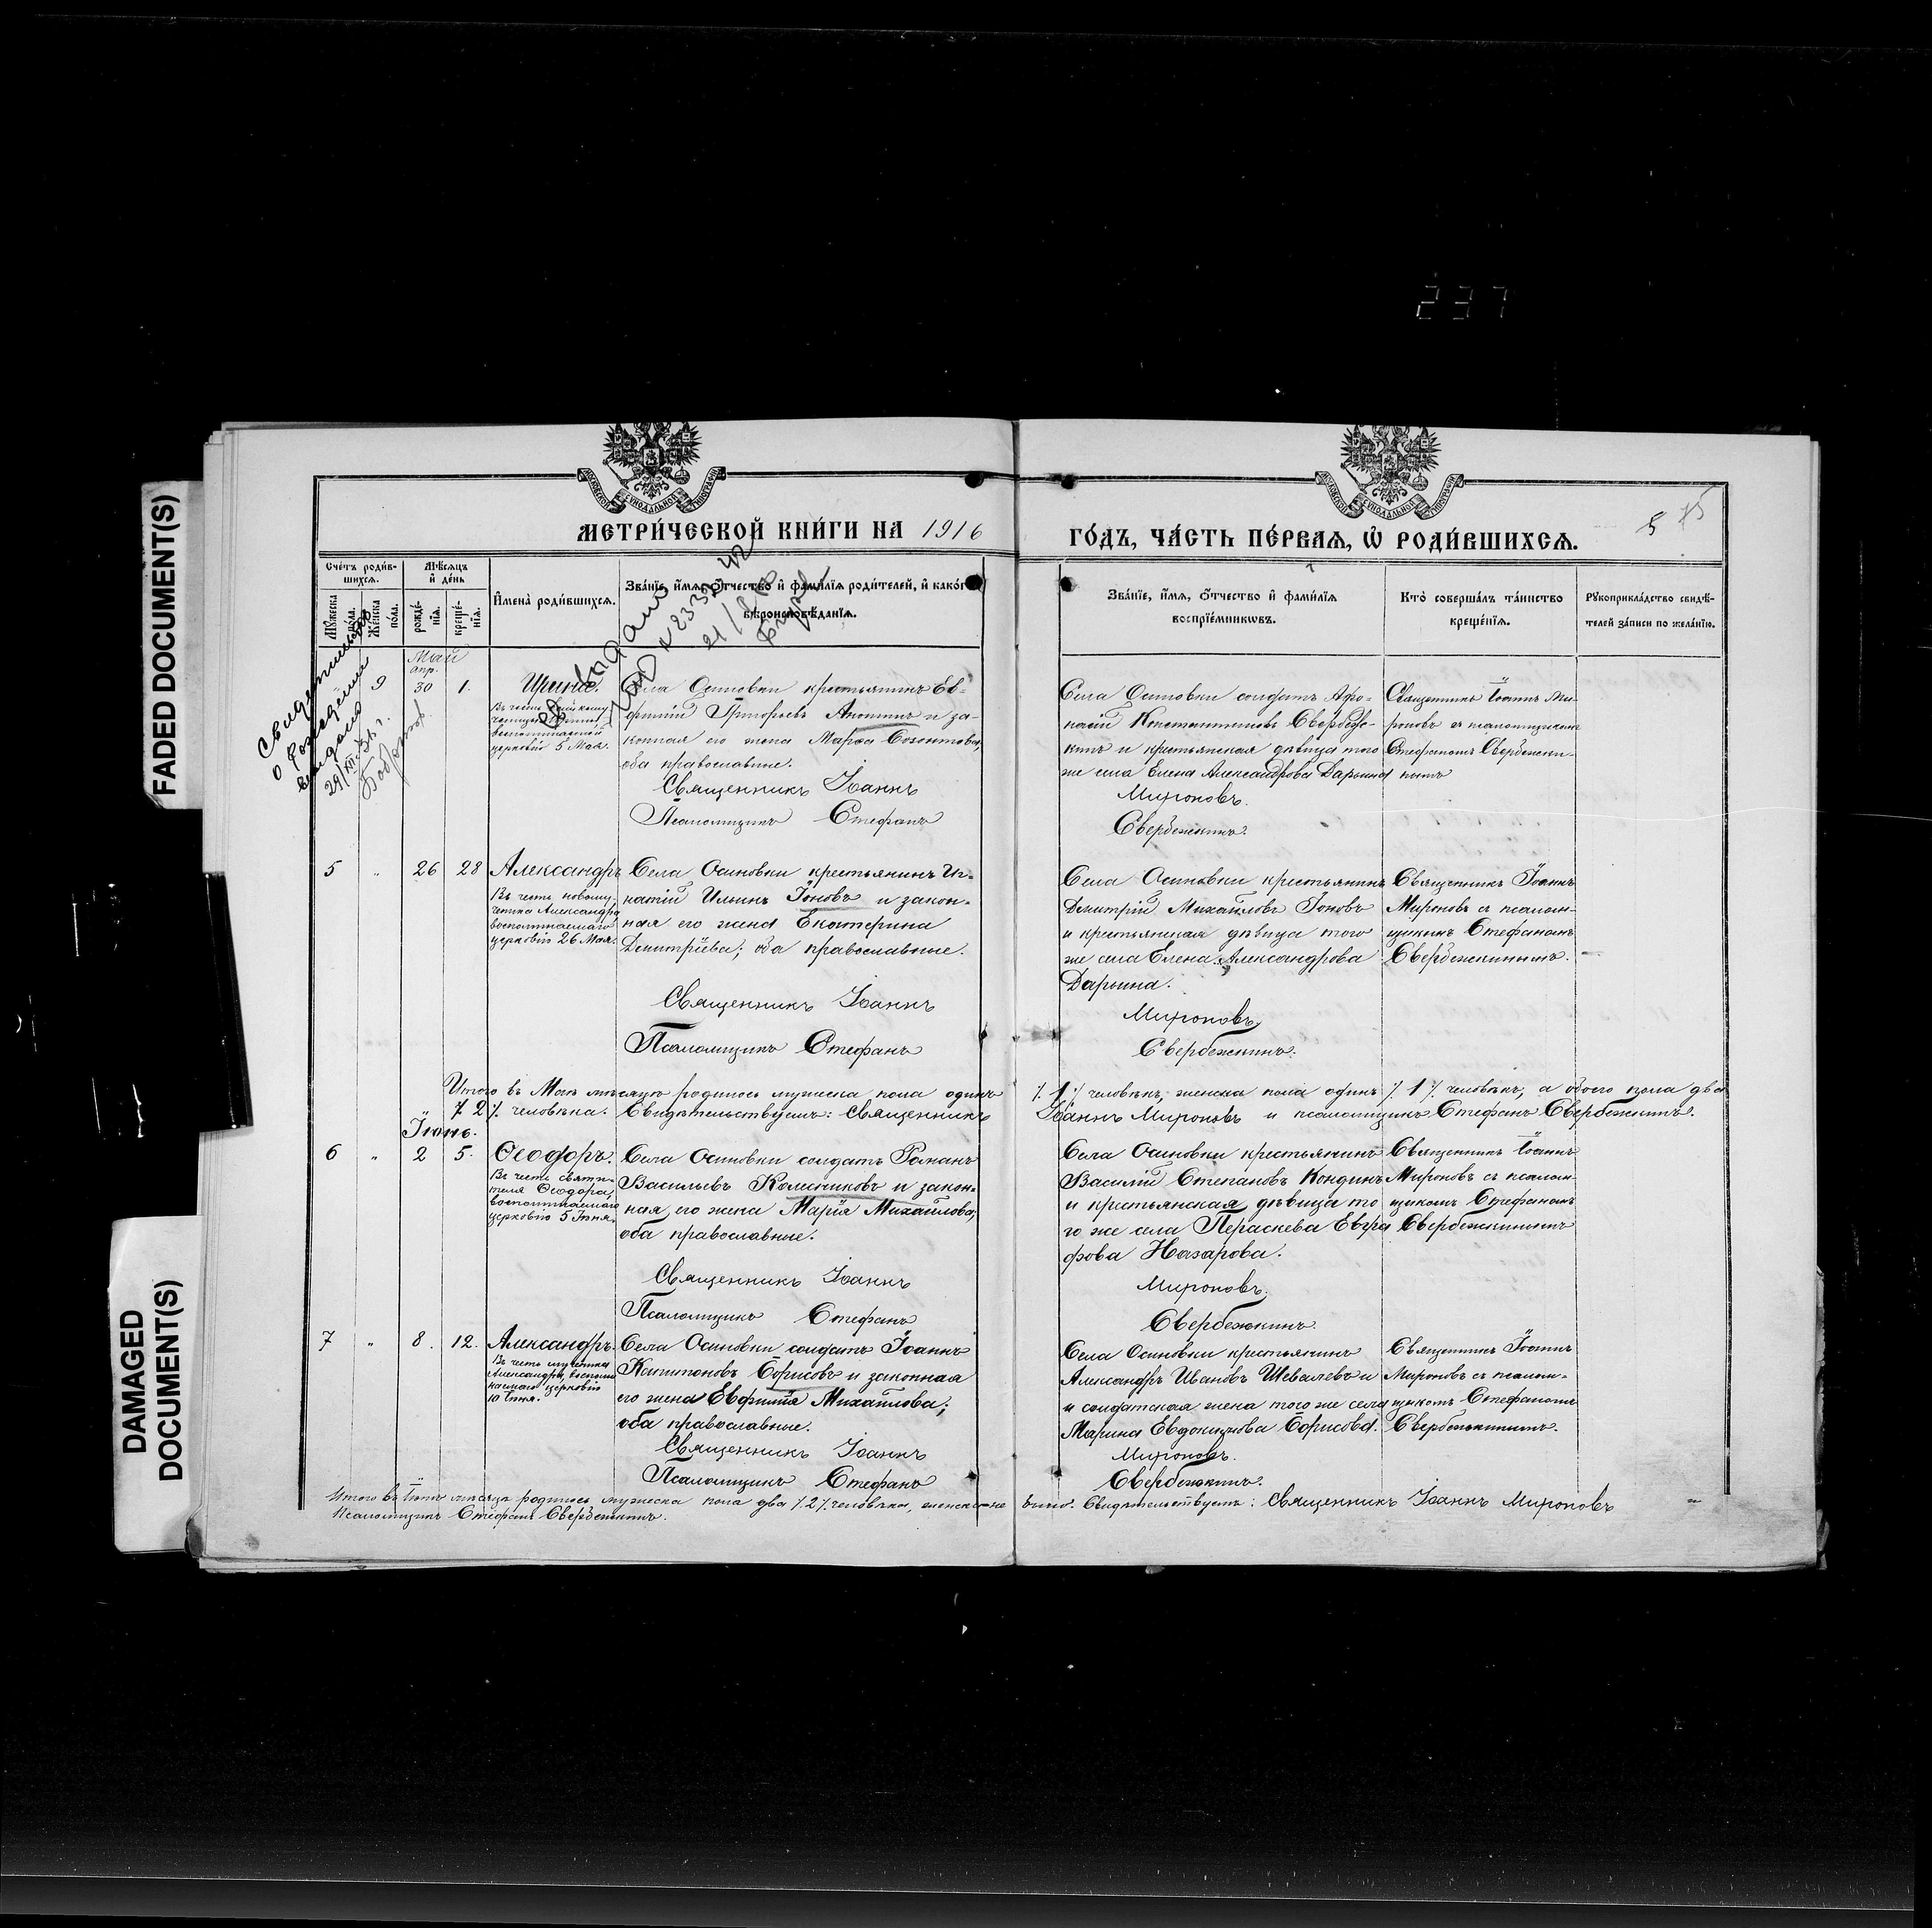 237
FADED DOCUMENT(S)
DAMAGED
DOCUMENT(S)
МЕТРИ́ЧЕСКОЙ КНИ́ГИ НА 1916
ГО́ДЪ, ЧА́СТЬ ПЕ́РВАЯ, Ѡ҆ РОДИ́ВШИХСѦ.
5
Сче́тъ роди́в-
шихся.
Мѣ́сяцъ
и҆ де́нь
Мꙋ́жеска
по́ла.
Же́нска
по́ла.
рожде́-
нїѧ.
креще́-
нїѧ.
И҆мена̀ роди́вшихсѧ.
Зва́нїе, и҆́мѧ, ѻ҆́тчество и҆ фамилїѧ роди́телей, и҆ како́гѡ
вѣроисповѣ́данїѧ.
Зва́нїе, и҆́мѧ, ѻ҆́тчество и҆ фами́лїѧ
воспрїе́мникѡвъ.
Кто̀ соверша́лъ та́инство
креще́нїѧ.
Рꙋкоприкла́дство свидѣ́-
телей за́писи по жела́нїю.
Свидетельство
о рождении
выдано
29/XII-36 г.
Май
апр.
9 30 1. Ирина.
церковію 5 Мая.
Села Осиновки крестьянинъ Ев-
фимій Григорьевъ Аношинъ и за-
конная его жена Марѳа Созонтова,
оба православные.
Священникъ Іоаннъ
Псаломщикъ Стефанъ
Села Осиновки солдатъ Афа-
насій Константиновъ Свербеж-
кинъ и крестьянская дѣвица того
же села Елена Александрова Дарьина
Мироновъ.
Свербежкинъ.
Священникъ Іоаннъ Ми-
роновъ съ псаломщикомъ
Стефаномъ Свербежки-
нымъ
5 " 26 28 Александръ
Въ честь новому-
ченика Александра
воспоминаемаго
церковію 26 Мая.
Села Осиновки крестьянинъ Иг-
натій Ильинъ Іоновъ и закон-
ная его жена Екатерина
Димитріева; оба православные.
Священникъ Іоаннъ
Псаломщикъ Стефанъ
Села Осиновки крестьянинъ
Димитрій Михайловъ Іоновъ
и крестьянская дѣвица того
же села Елена Александрова
Дарьина.
Мироновъ.
Свербежкинъ.
Священникъ Іоаннъ
Мироновъ съ псалом-
щикомъ Стефаномъ
Свербежкинымъ.
Итого въ Маѣ мѣсяцѣ родилось мужеска пола одинъ ·/. 1 ·/. человѣкъ, женска пола одинъ ·/. 1 ·/. человѣкъ, а обоего пола два
·/. 2 ·/. человѣка. Свидѣтельствуемъ: Священникъ Іоаннъ Мироновъ и псаломщикъ Стефанъ Свербежкинъ.
Іюнь.
6 " 2 5. Ѳеодоръ.
Въ честь святи-
теля Ѳеодора,
воспоминаемаго
церковію 5 Іюня.
Села Осиновки солдатъ Романъ
Васильевъ Колесниковъ и закон-
ная его жена Марія Михайлова,
оба православные.
Священникъ Іоаннъ
Псаломщикъ Стефанъ
Села Осиновки крестьянинъ
Василій Степановъ Кондинъ
и крестьянская дѣвица то
го же села Параскева Евгра
фова Назарова.
Мироновъ.
Свербежкинъ.
Священникъ Іоаннъ
Мироновъ съ псалом-
щикомъ Стефаномъ
Свербежкинымъ
7 " 8. 12. Александръ.
Въ честь мученика
Александра, воспоми
наемаго церковію
10 Іюня.
Села Осиновки солдатъ Іоаннъ
Капитоновъ Борисовъ и законная
его жена Евфимія Михайлова;
оба православные.
Священникъ Іоаннъ
Псаломщикъ Стефанъ
Села Осиновки крестьянинъ
Александръ Ивановъ Шевалевъ и
и солдатская жена того же села
Марина Евдокимова Борисова.
Мироновъ.
Свербежкинъ.
Священникъ Іоаннъ
Мироновъ съ псалом-
щикомъ Стефаномъ
Свербежкинымъ.
Итого въ Іюнѣ мѣсяцѣ родилось мужеска пола два ·/. 2 ·/. человѣка, женска не было. Свидѣтельствуемъ: Священникъ Іоаннъ Мироновъ
Псаломщикъ Стефанъ Свербежкинъ.